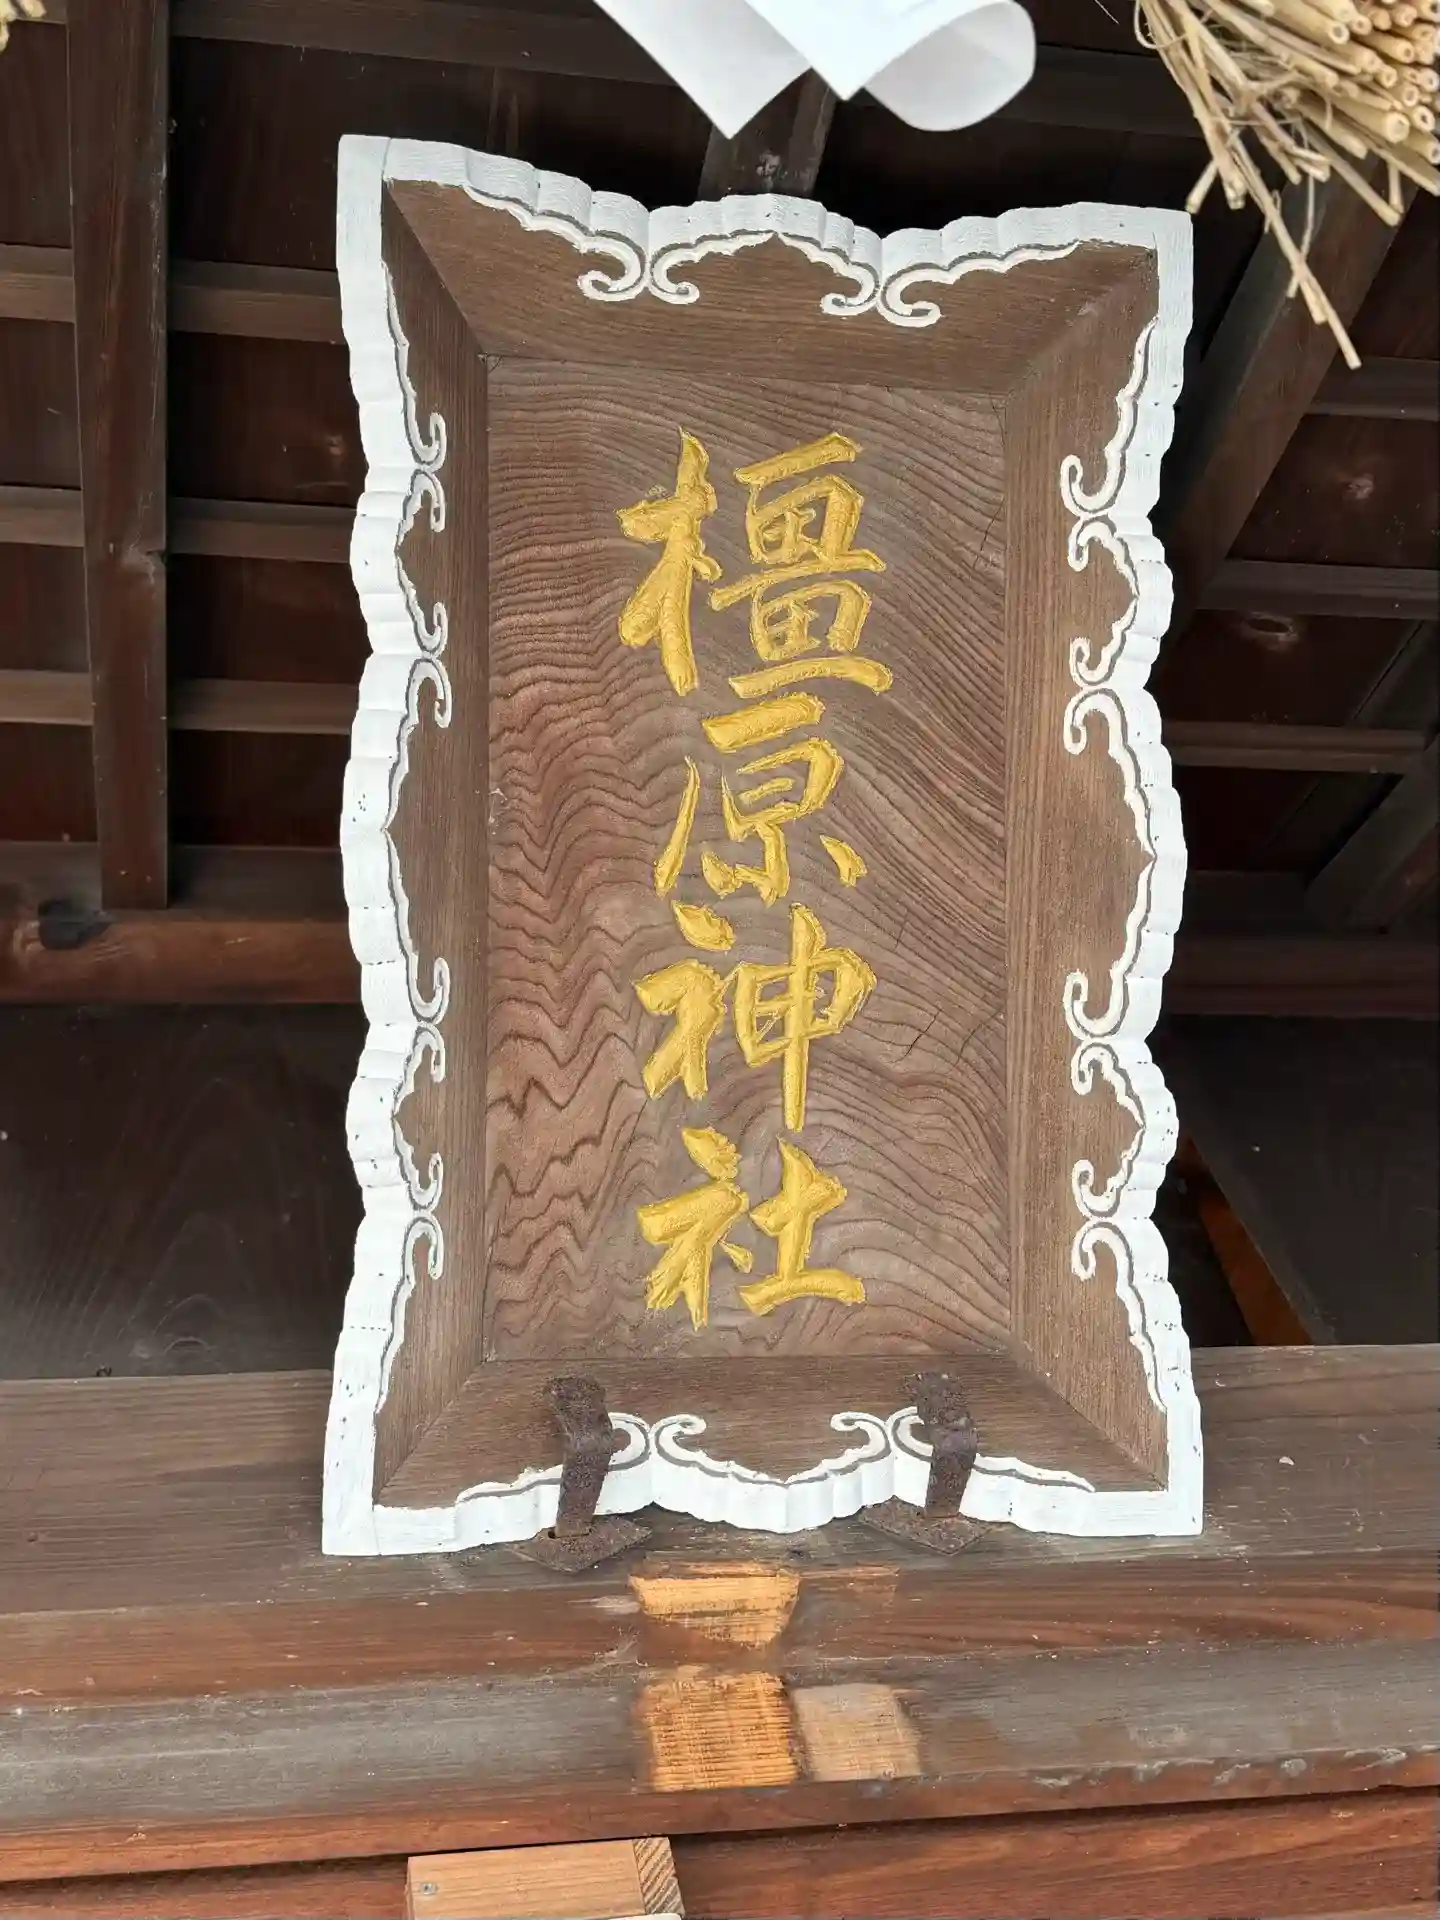 橿原神社